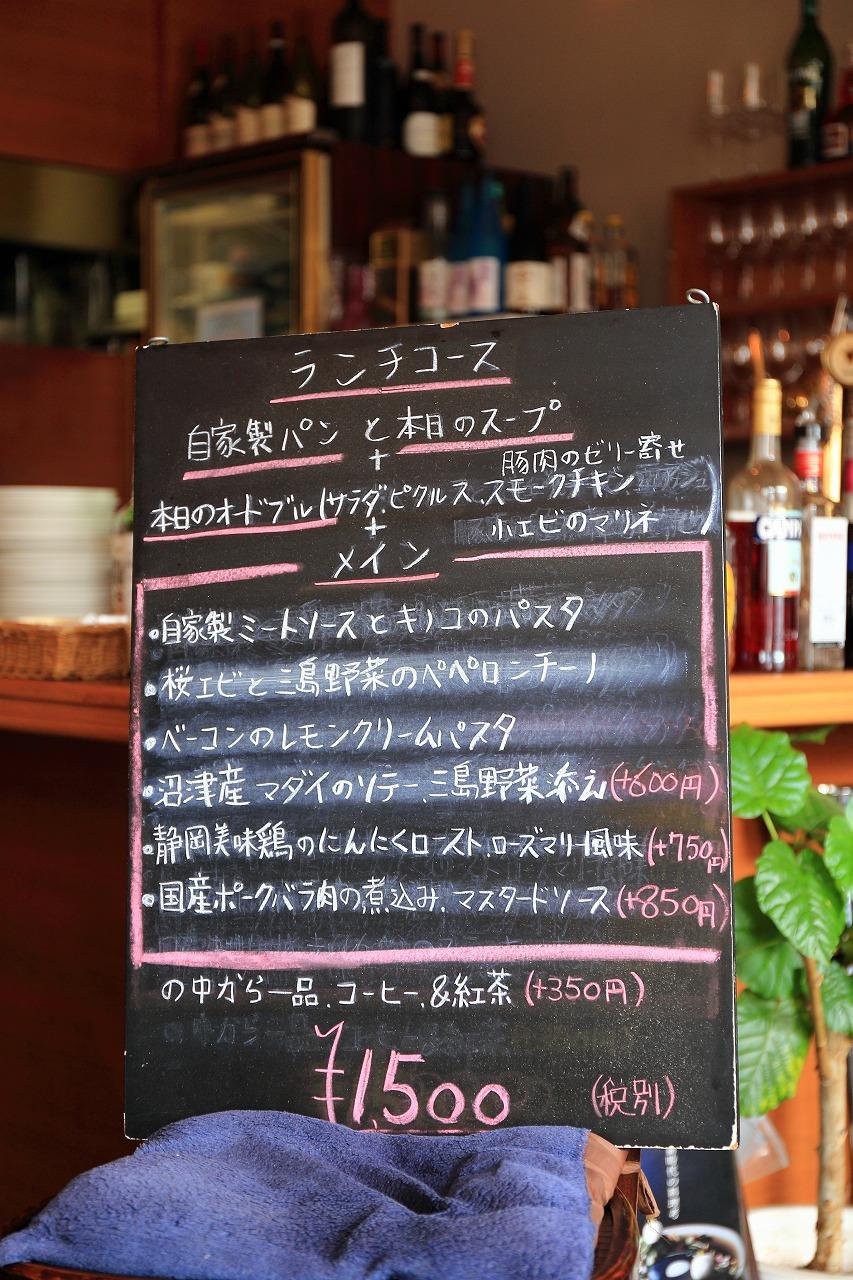 ランチコース
自家製パンと本日のスープ
+
豚肉のゼリー寄せ
本日のオードブル(サラダ、ピクルス、スモークチキン
+
小エビのマリネ)
メイン
•自家製ミートソースとキノコのパスタ
•桜エビと三島野菜のペペロンチーノ
•ベーコンのレモンクリームパスタ
•沼津産マダイのソテー、三島野菜添え(+600円)
•静岡美味鶏のにんにくロースト、ローズマリー風味(+750円)
•国産ポークバラ肉の煮込み、マスタードソース(+850円)
の中から一品、コーヒー、&紅茶(+350円)
¥1,500 (税別)